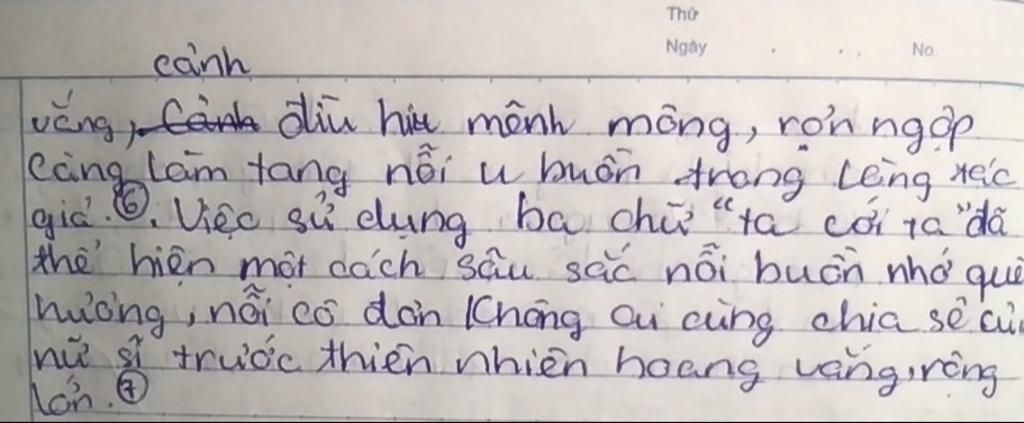 Thứ
Ngày . . . No
cảnh
vắng, cảnh đìu hiu mênh mông, rợn ngợp
càng làm tang nỗi u buồn trong lòng tác
giả. ⑥. Việc sử dụng ba chữ "ta với ta" đã
thể hiện một cách sâu sắc nỗi buồn nhớ quê
hương, nỗi cô đơn không ai cùng chia sẻ củ
nữ sĩ trước thiên nhiên hoang vắng, rộng
lớn. ⑦